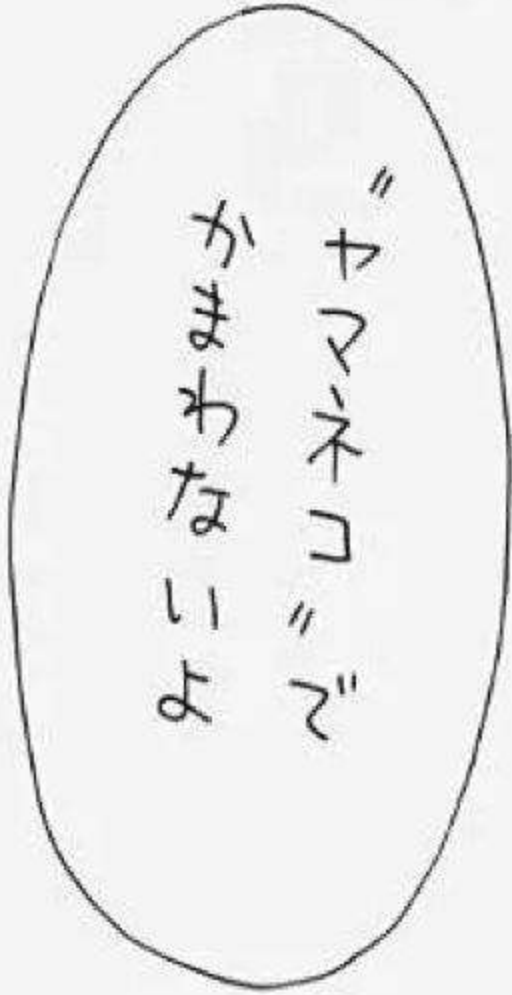 〃ヤマネコ〃で
かまわないよ